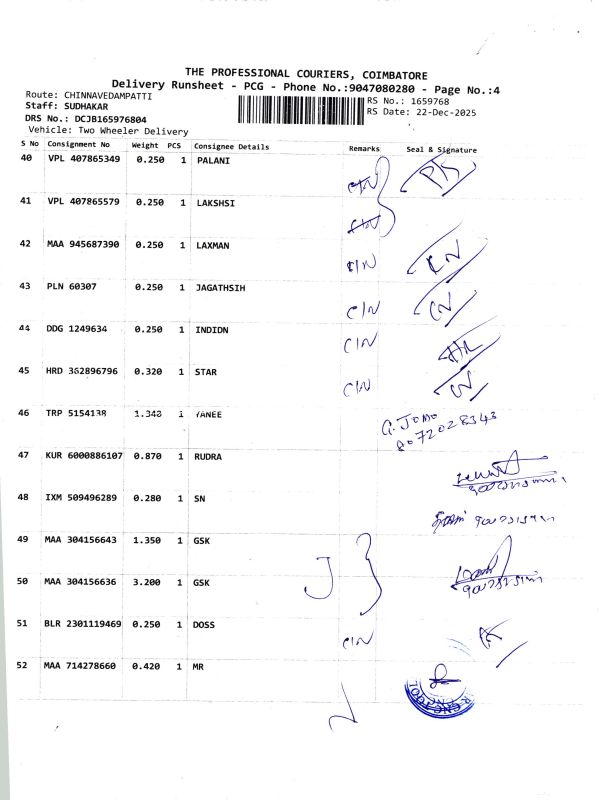 THE PROFESSIONAL COURIERS, COIMBATORE
Delivery Runsheet - PCG - Phone No.:9047080280 - Page No.:4
Route: CHINNAVEDAMPATTI
Staff: SUDHAKAR
DRS No.: DCJB165976804
RS No.: 1659768
RS Date: 22-Dec-2025
Vehicle: Two Wheeler Delivery
S No Consignment No Weight PCS Consignee Details Remarks Seal & Signature
40 VPL 407865349 0.250 1 PALANI C/N
41 VPL 407865579 0.250 1 LAKSHSI C/N
42 MAA 945687390 0.250 1 LAXMAN C/N
43 PLN 60307 0.250 1 JAGATHSIH C/N
44 DDG 1249634 0.250 1 INDIDN C/N
45 HRD 362896796 0.320 1 STAR C/N
46 TRP 5154138 1.340 1 YANEE
8072028343
47 KUR 6000886107 0.870 1 RUDRA
48 IXM 509496289 0.280 1 SN
49 MAA 304156643 1.350 1 GSK
50 MAA 304156636 3.200 1 GSK
51 BLR 2301119469 0.250 1 DOSS C/N
52 MAA 714278660 0.420 1 MR